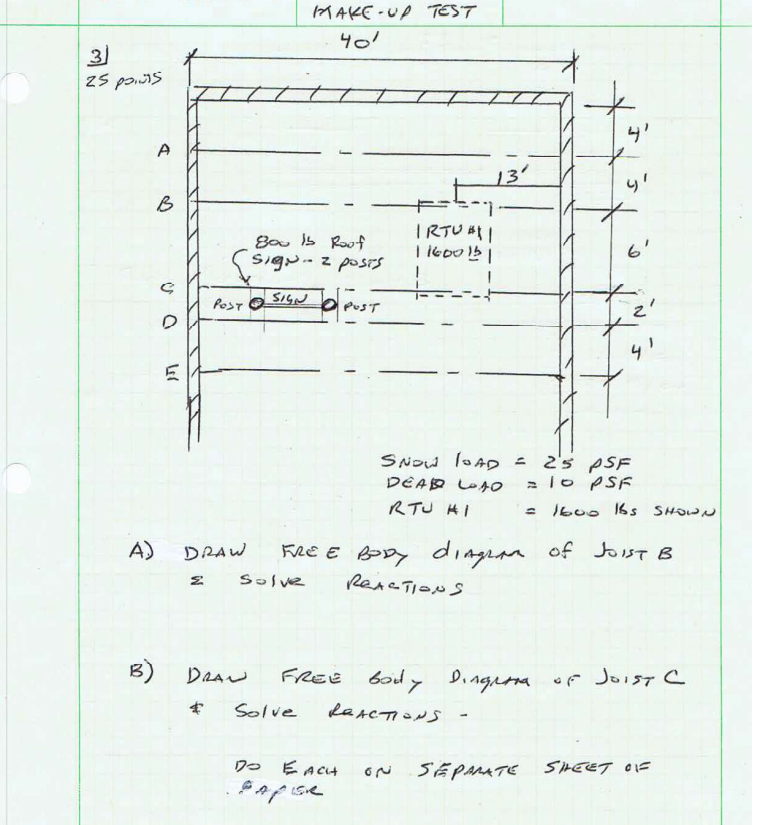 MAKE-UP TEST
40'
3)
25 POINTS
4'
A
13'
4'
B
RTU #1
1600 lb
6'
800 lb Roof
SIGN - 2 POSTS
C
POST
SIGN
POST
2'
D
4'
E
SNOW LOAD = 25 PSF
DEAD LOAD = 10 PSF
RTU #1 = 1600 lbs SHOWN
A) DRAW FREE BODY diAGRAM of JOIST B
& Solve REACTIONS
B) DRAW FREE Body DIAGRAM OF JOIST C
& Solve REACTIONS -
DO EACH ON SEPARATE SHEET OF
PAPER